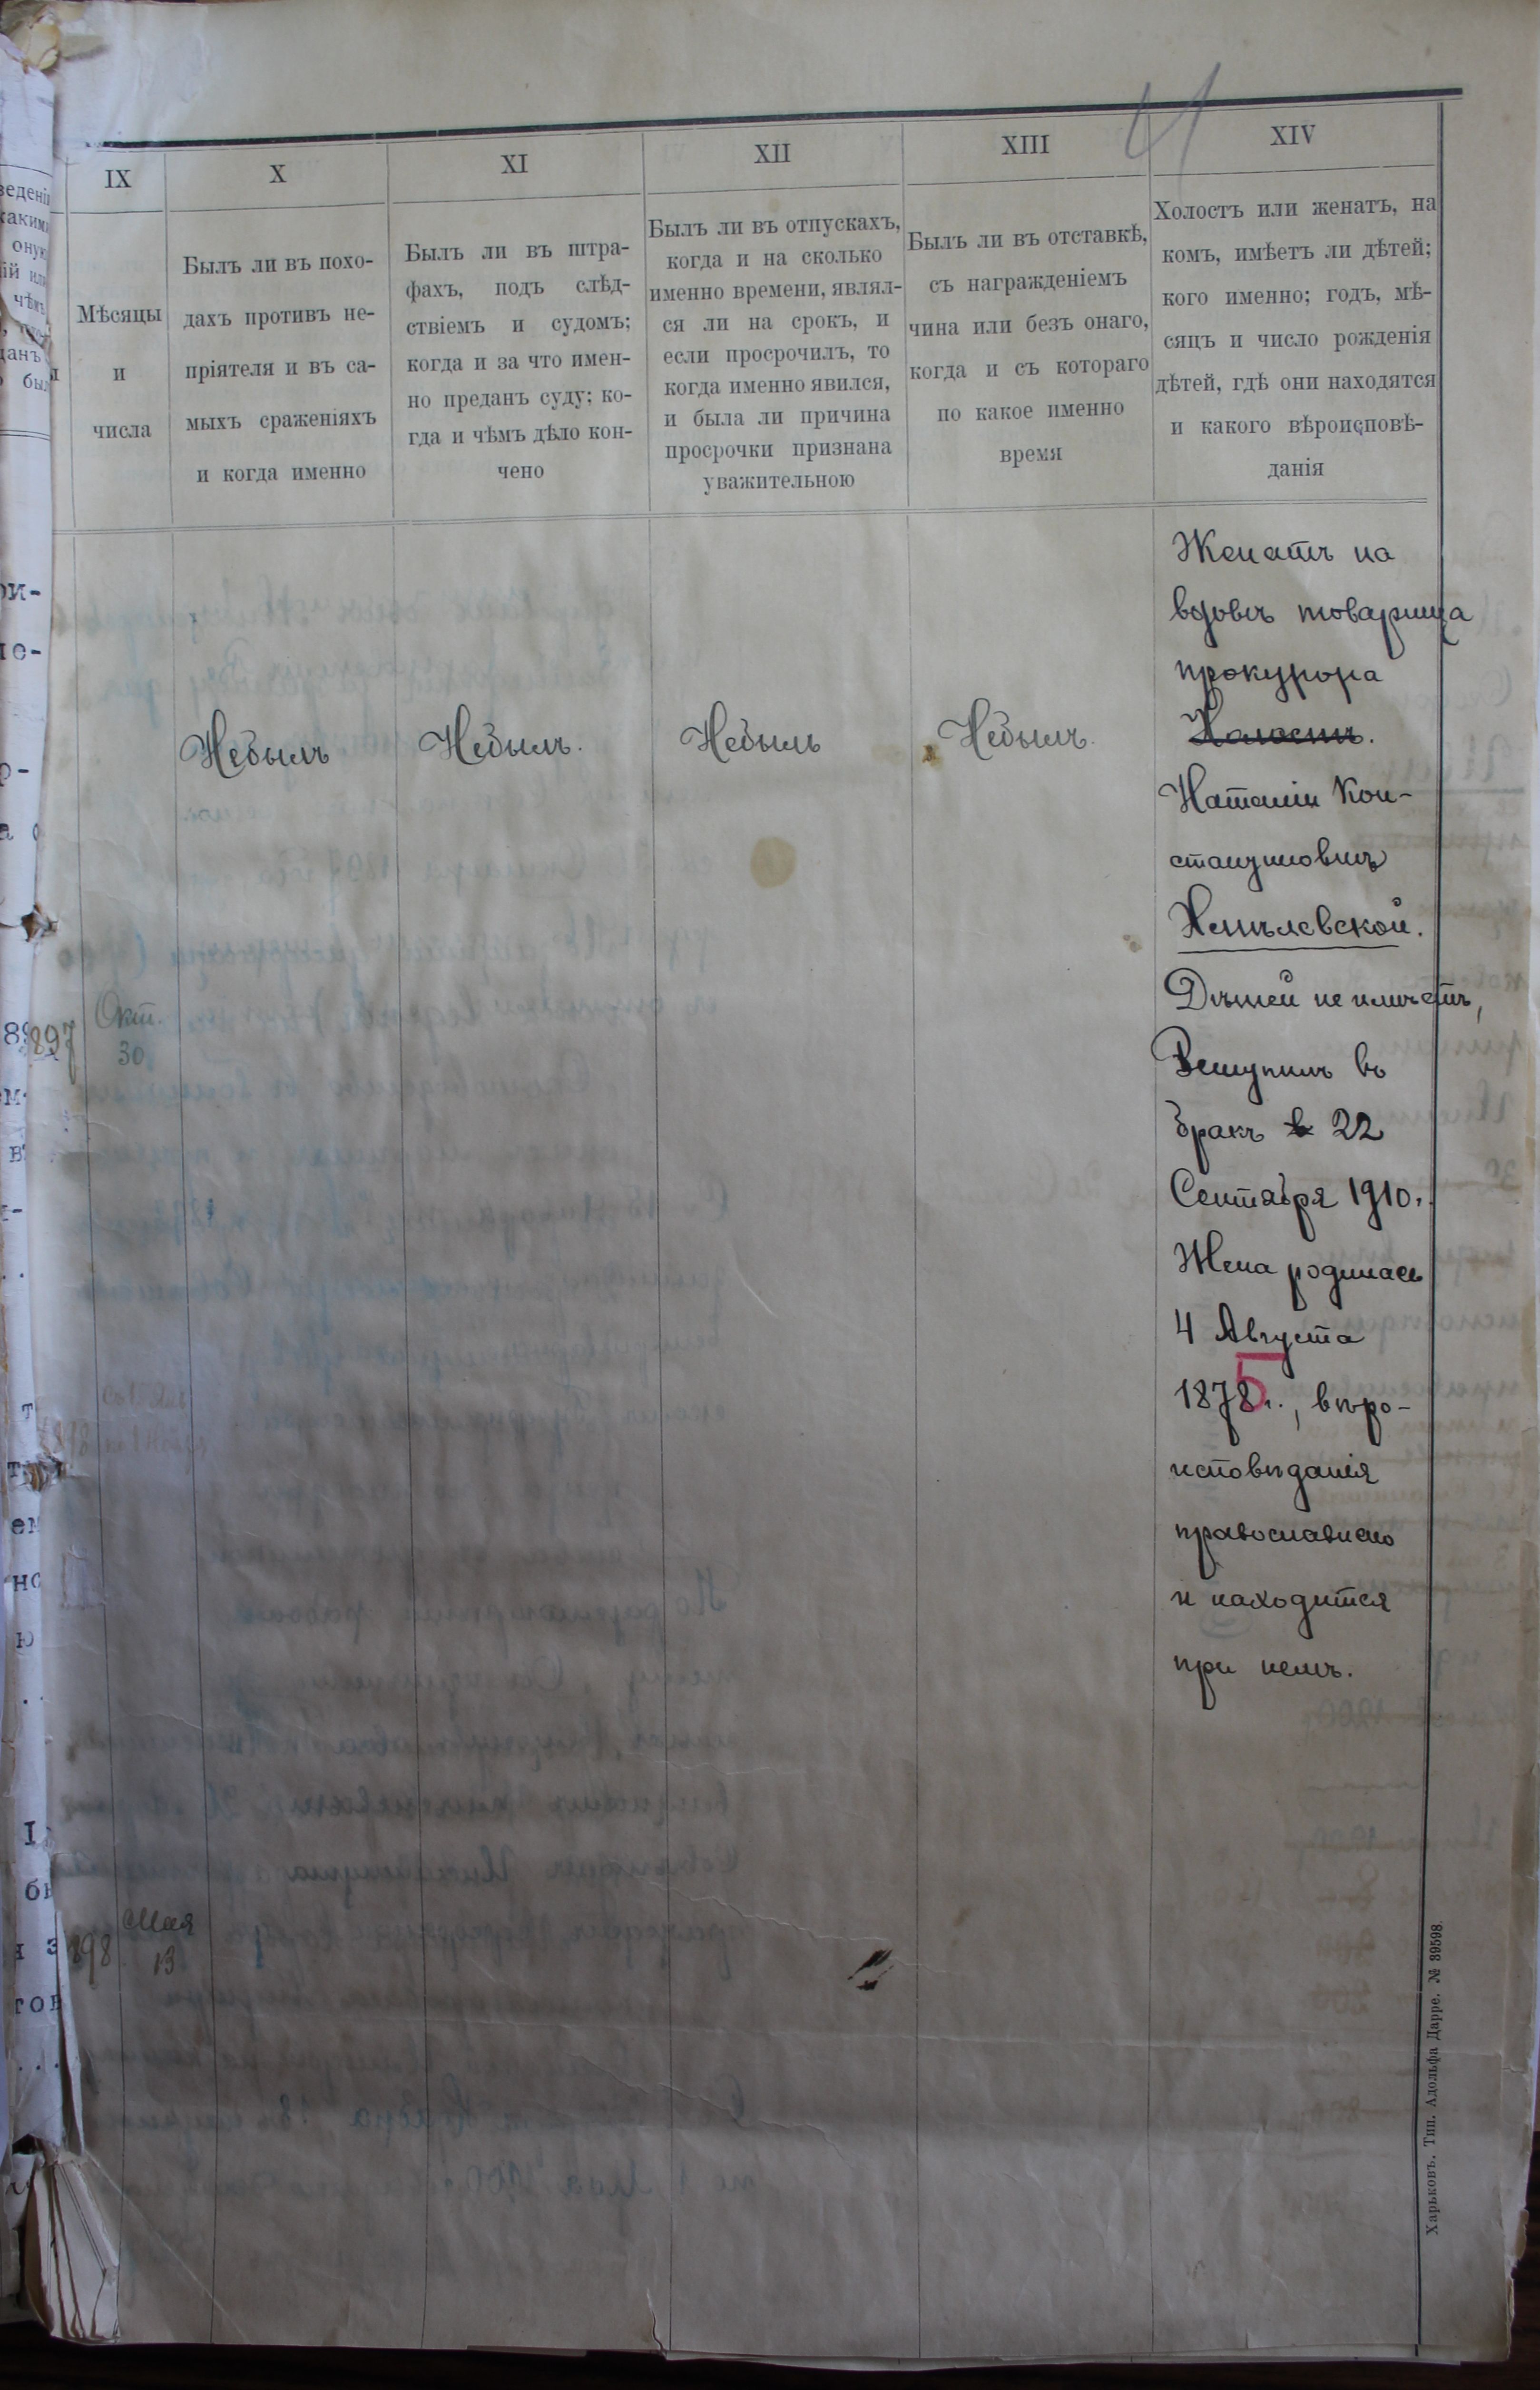 IX
Мѣсяцы
и
числа
X
Былъ ли въ похо-
дахъ противъ не-
пріятеля и въ са-
мыхъ сраженіяхъ
и когда именно
XI
Былъ ли въ штра-
фахъ, подъ слѣд-
ствіемъ и судомъ;
когда и за что имен-
но преданъ суду; ко-
гда и чѣмъ дѣло кон-
чено
XII
Былъ ли въ отпускахъ,
когда и на сколько
именно времени, являл-
ся ли на срокъ, и
если просрочилъ, то
когда именно явился,
и была ли причина
просрочки признана
уважительною
XIII
Былъ ли въ отставкѣ,
съ награжденіемъ
чина или безъ онаго,
когда и съ котораго
по какое именно
время
XIV
Холостъ или женатъ, на
комъ, имѣетъ ли дѣтей;
кого именно; годъ, мѣ-
сяцъ и число рожденія
дѣтей, гдѣ они находятся
и какого вѣроисповѣ-
данія
897
Окт.
30
898
Мая
13
Небылъ
Небылъ.
Небылъ
Небылъ.
Женатъ на
вдовѣ товарища
прокурора
Холостъ.
Наталіи Кон-
стантиновнѣ
Дѣтей не имѣетъ,
Вступилъ въ
бракъ в 22
Сентября 1910 г.
Жена родилась
4 Августа
1878 г., вѣро-
5
исповѣданія
православнаго
и находится
при немъ.
Харьковъ. Тип. Адольфа Дарре. № 39598.